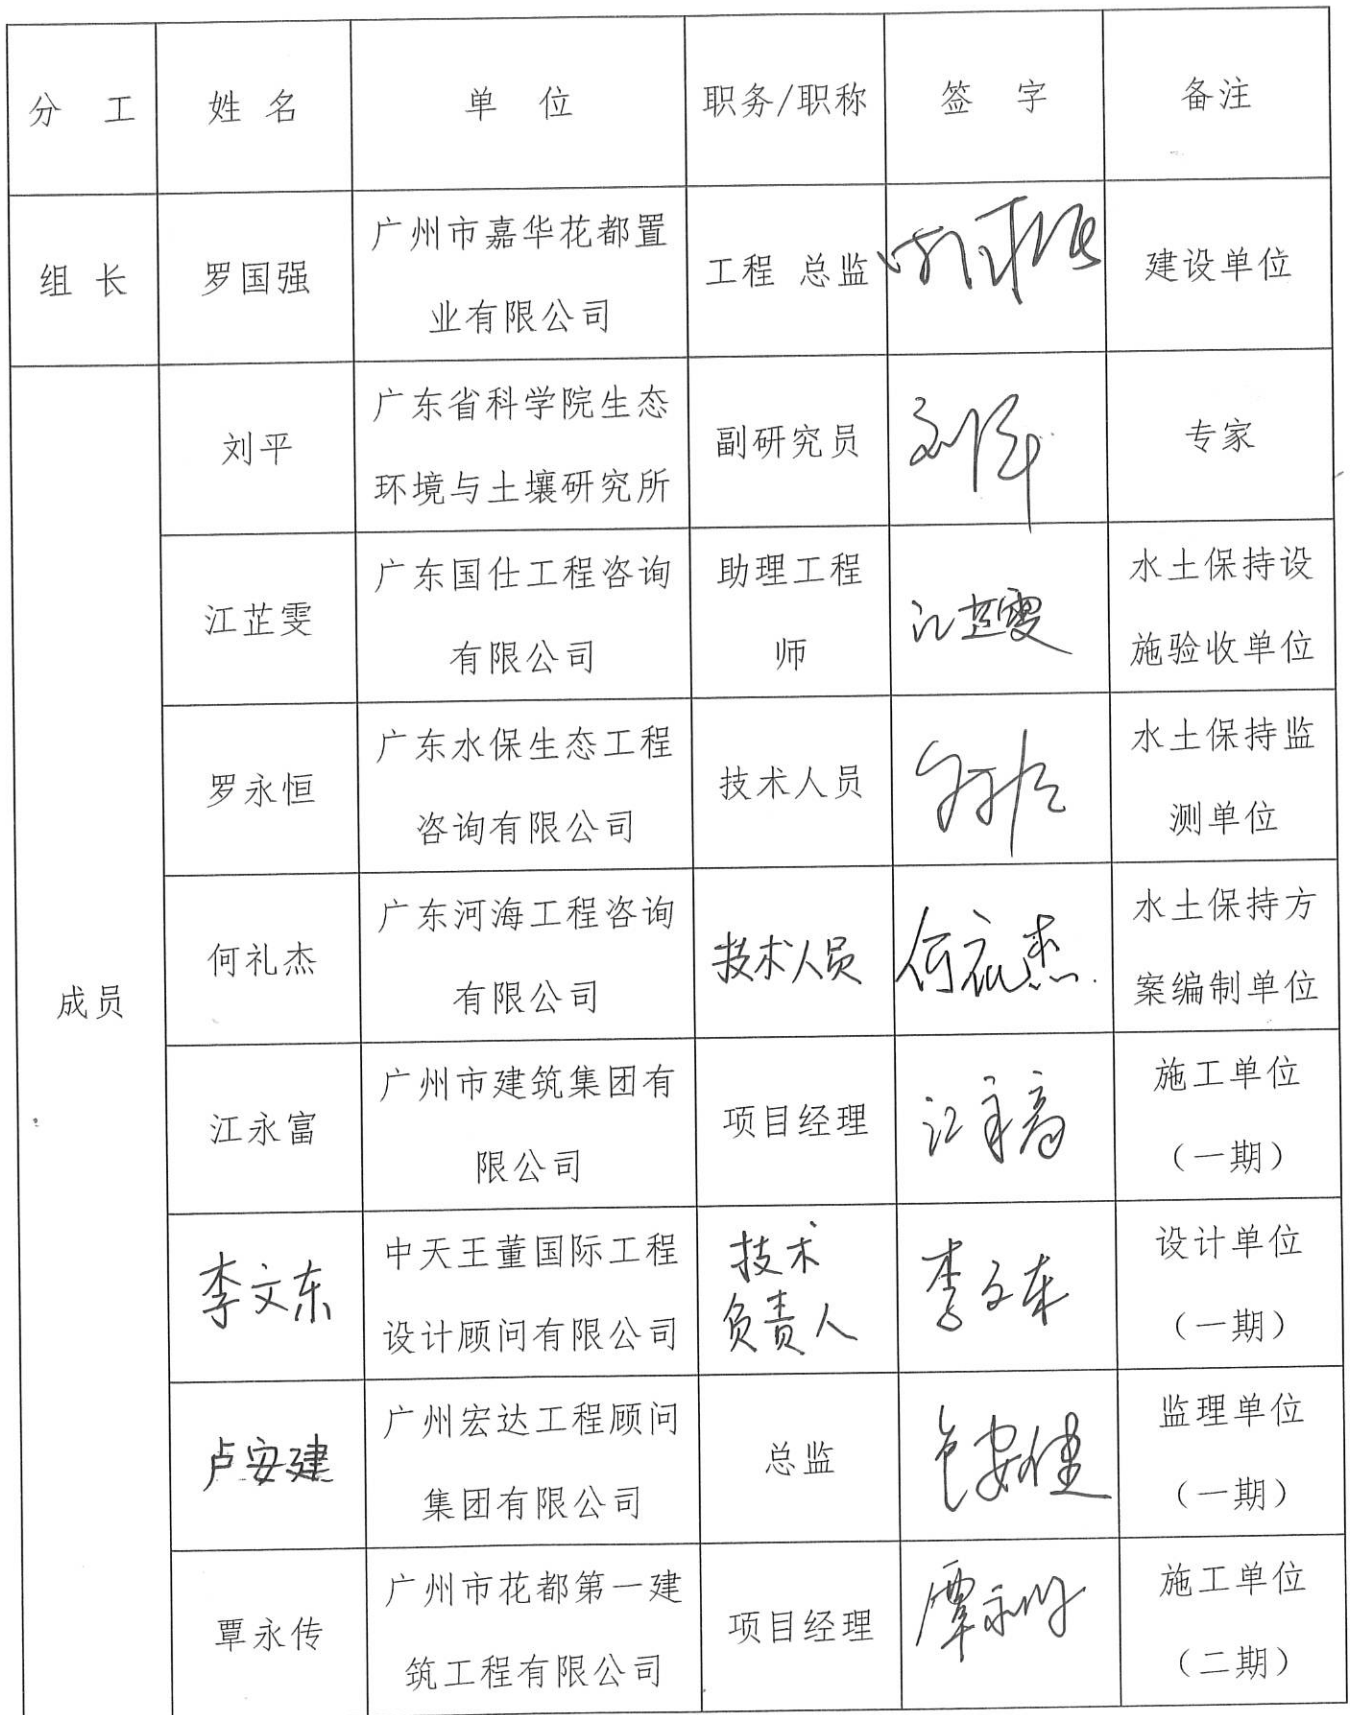 分 工 姓 名 单 位 职务/职称 签 字 备注
组 长 罗国强 广州市嘉华花都置
业有限公司 工程 总监 建设单位
成员
刘平 广东省科学院生态
环境与土壤研究所 副研究员 刘平 专家
江芷雯 广东国仕工程咨询
有限公司 助理工程
师 江芷雯 水土保持设
施验收单位
罗永恒 广东水保生态工程
咨询有限公司 技术人员 水土保持监
测单位
何礼杰 广东河海工程咨询
有限公司 技术人员 何礼杰 水土保持方
案编制单位
江永富 广州市建筑集团有
限公司 项目经理 江永富 施工单位
（一期）
李文东 中天王董国际工程
设计顾问有限公司 技术
负责人 李文东 设计单位
（一期）
卢安建 广州宏达工程顾问
集团有限公司 总监 监理单位
（一期）
覃永传 广州市花都第一建
筑工程有限公司 项目经理 覃永传 施工单位
（二期）